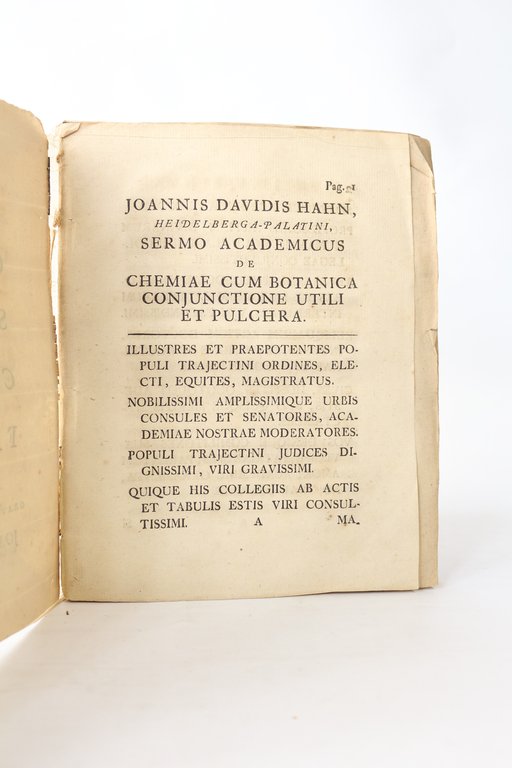 Pag. 1
JOANNIS DAVIDIS HAHN,
HEIDELBERGA-PALATINI,
SERMO ACADEMICUS
DE
CHEMIAE CUM BOTANICA
CONJUNCTIONE UTILI
ET PULCHRA.
ILLUSTRES ET PRAEPOTENTES PO-
PULI TRAJECTINI ORDINES, ELE-
CTI, EQUITES, MAGISTRATUS.
NOBILISSIMI AMPLISSIMIQUE URBIS
CONSULES ET SENATORES, ACA-
DEMIAE NOSTRAE MODERATORES.
POPULI TRAJECTINI JUDICES DI-
GNISSIMI, VIRI GRAVISSIMI.
QUIQUE HIS COLLEGIIS AB ACTIS
ET TABULIS ESTIS VIRI CONSUL-
TISSIMI. A MA-